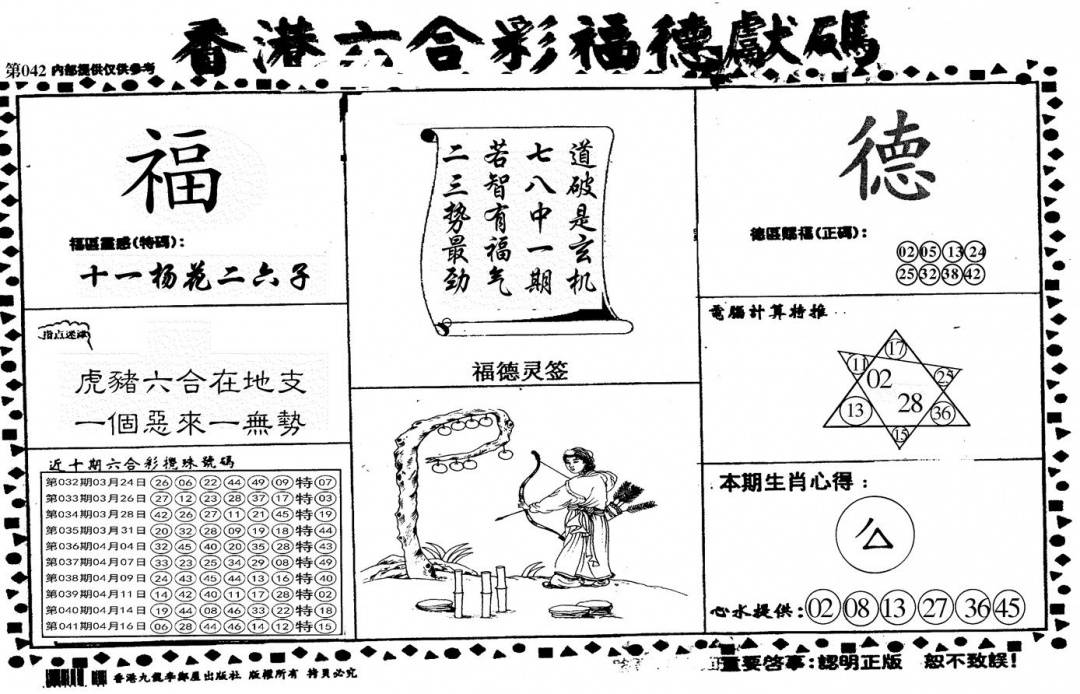 香港六合彩福德獻碼
第042 内部提供仅供参考
福
福區靈感(特碼):
十一杨花二六子
指点迷津
虎豬六合在地支
一個惡來一無勢
近十期六合彩攪珠號碼
第032期03月24日 26 06 22 44 49 09 特 07
第033期03月26日 27 12 23 28 37 17 特 03
第034期03月28日 42 26 27 11 21 45 特 19
第035期03月31日 20 32 28 09 19 18 特 44
第036期04月04日 32 45 40 20 35 28 特 43
第037期04月07日 33 23 25 34 29 08 特 49
第038期04月09日 24 43 45 44 13 16 特 40
第039期04月11日 14 42 40 11 17 28 特 02
第040期04月14日 19 44 08 46 33 22 特 18
第041期04月16日 06 28 44 46 14 12 特 15
道破是玄机
七八中一期
若智有福气
二三勢最劲
福德灵签
德
德區賜福(正碼):
02 05 13 24
25 32 38 42
電腦計算特推
17
11 02 25
13 28 36
15
本期生肖心得:
心水提供: 02 08 13 27 36 45
香港九龍李鄭屋出版社 版權所有 拷貝必究
重要啓事:認明正版 恕不致誤!